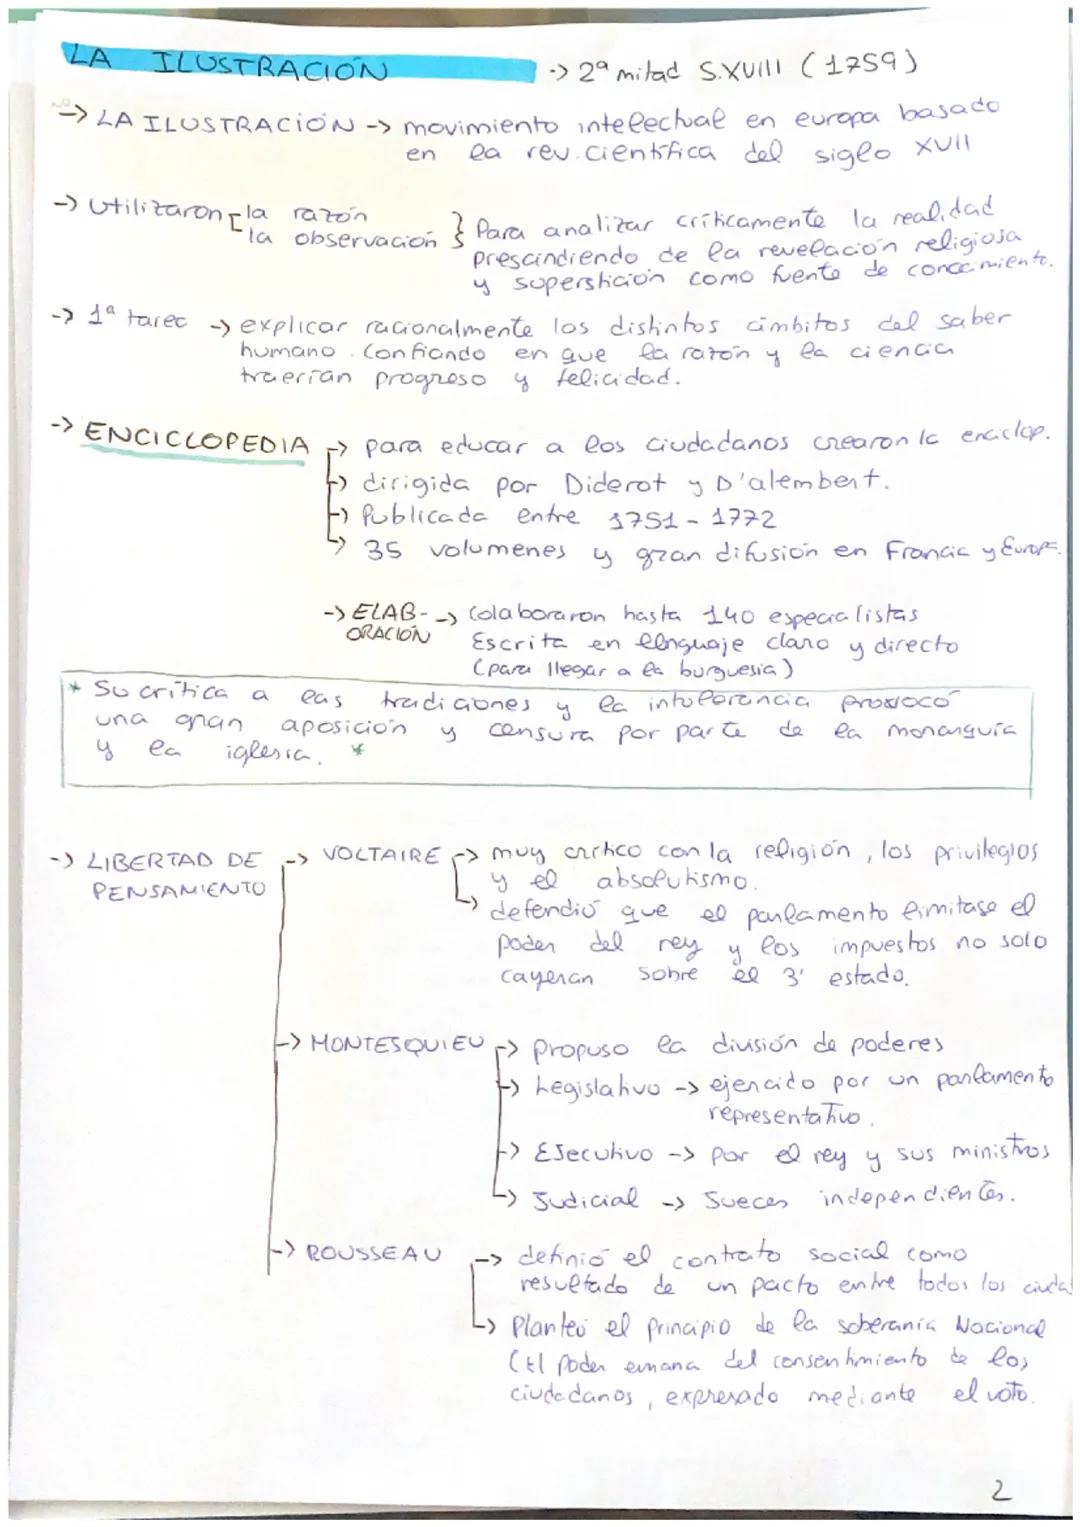 LA ILUSTRACIÓN -> 2ª mitad S.XVIII (1759)
-> LA ILUSTRACIÓN -> movimiento intelectual en europa basado
en la rev. científica del siglo XVII
-> Utilizaron la razón
la observación } Para analizar críticamente la realidad
prescindiendo de la revelación religiosa
y superstición como fuente de conocimiento.
-> 1ª tarea -> explicar racionalmente los distintos ámbitos del saber
humano. Confiando en que la razón y la ciencia
traerían progreso y felicidad.
-> ENCICLOPEDIA -> para educar a los ciudadanos crearon la enciclop.
-> dirigida por Diderot y D'alembert.
-> Publicada entre 1751 - 1772
-> 35 volumenes y gran difusión en Francia y Europa.
-> ELAB- -> Colaboraron hasta 140 especialistas
ORACIÓN Escrita en lenguaje claro y directo
(para llegar a la burguesía)
* Su crítica a las tradiciones y la intolerancia provocó
una gran aposición y censura por parte de la monarquía
y la iglesia. *
-> LIBERTAD DE -> VOLTAIRE -> muy crítico con la religión, los privilegios
PENSAMIENTO y el absolutismo.
-> defendió que el parlamento limitase el
poder del rey y los impuestos no solo
cayeran sobre el 3' estado.
-> MONTESQUIEU -> Propuso la división de poderes
-> Legislativo -> ejercido por un parlamento
representativo.
-> Ejecutivo -> por el rey y sus ministros
-> Judicial -> Jueces independientes.
-> ROUSSEAU -> definió el contrato social como
resultado de un pacto entre todos los ciuda
-> Planteó el principio de la soberanía Nacional
(El poder emana del consentimiento de los
ciudadanos, expresado mediante el voto.
2